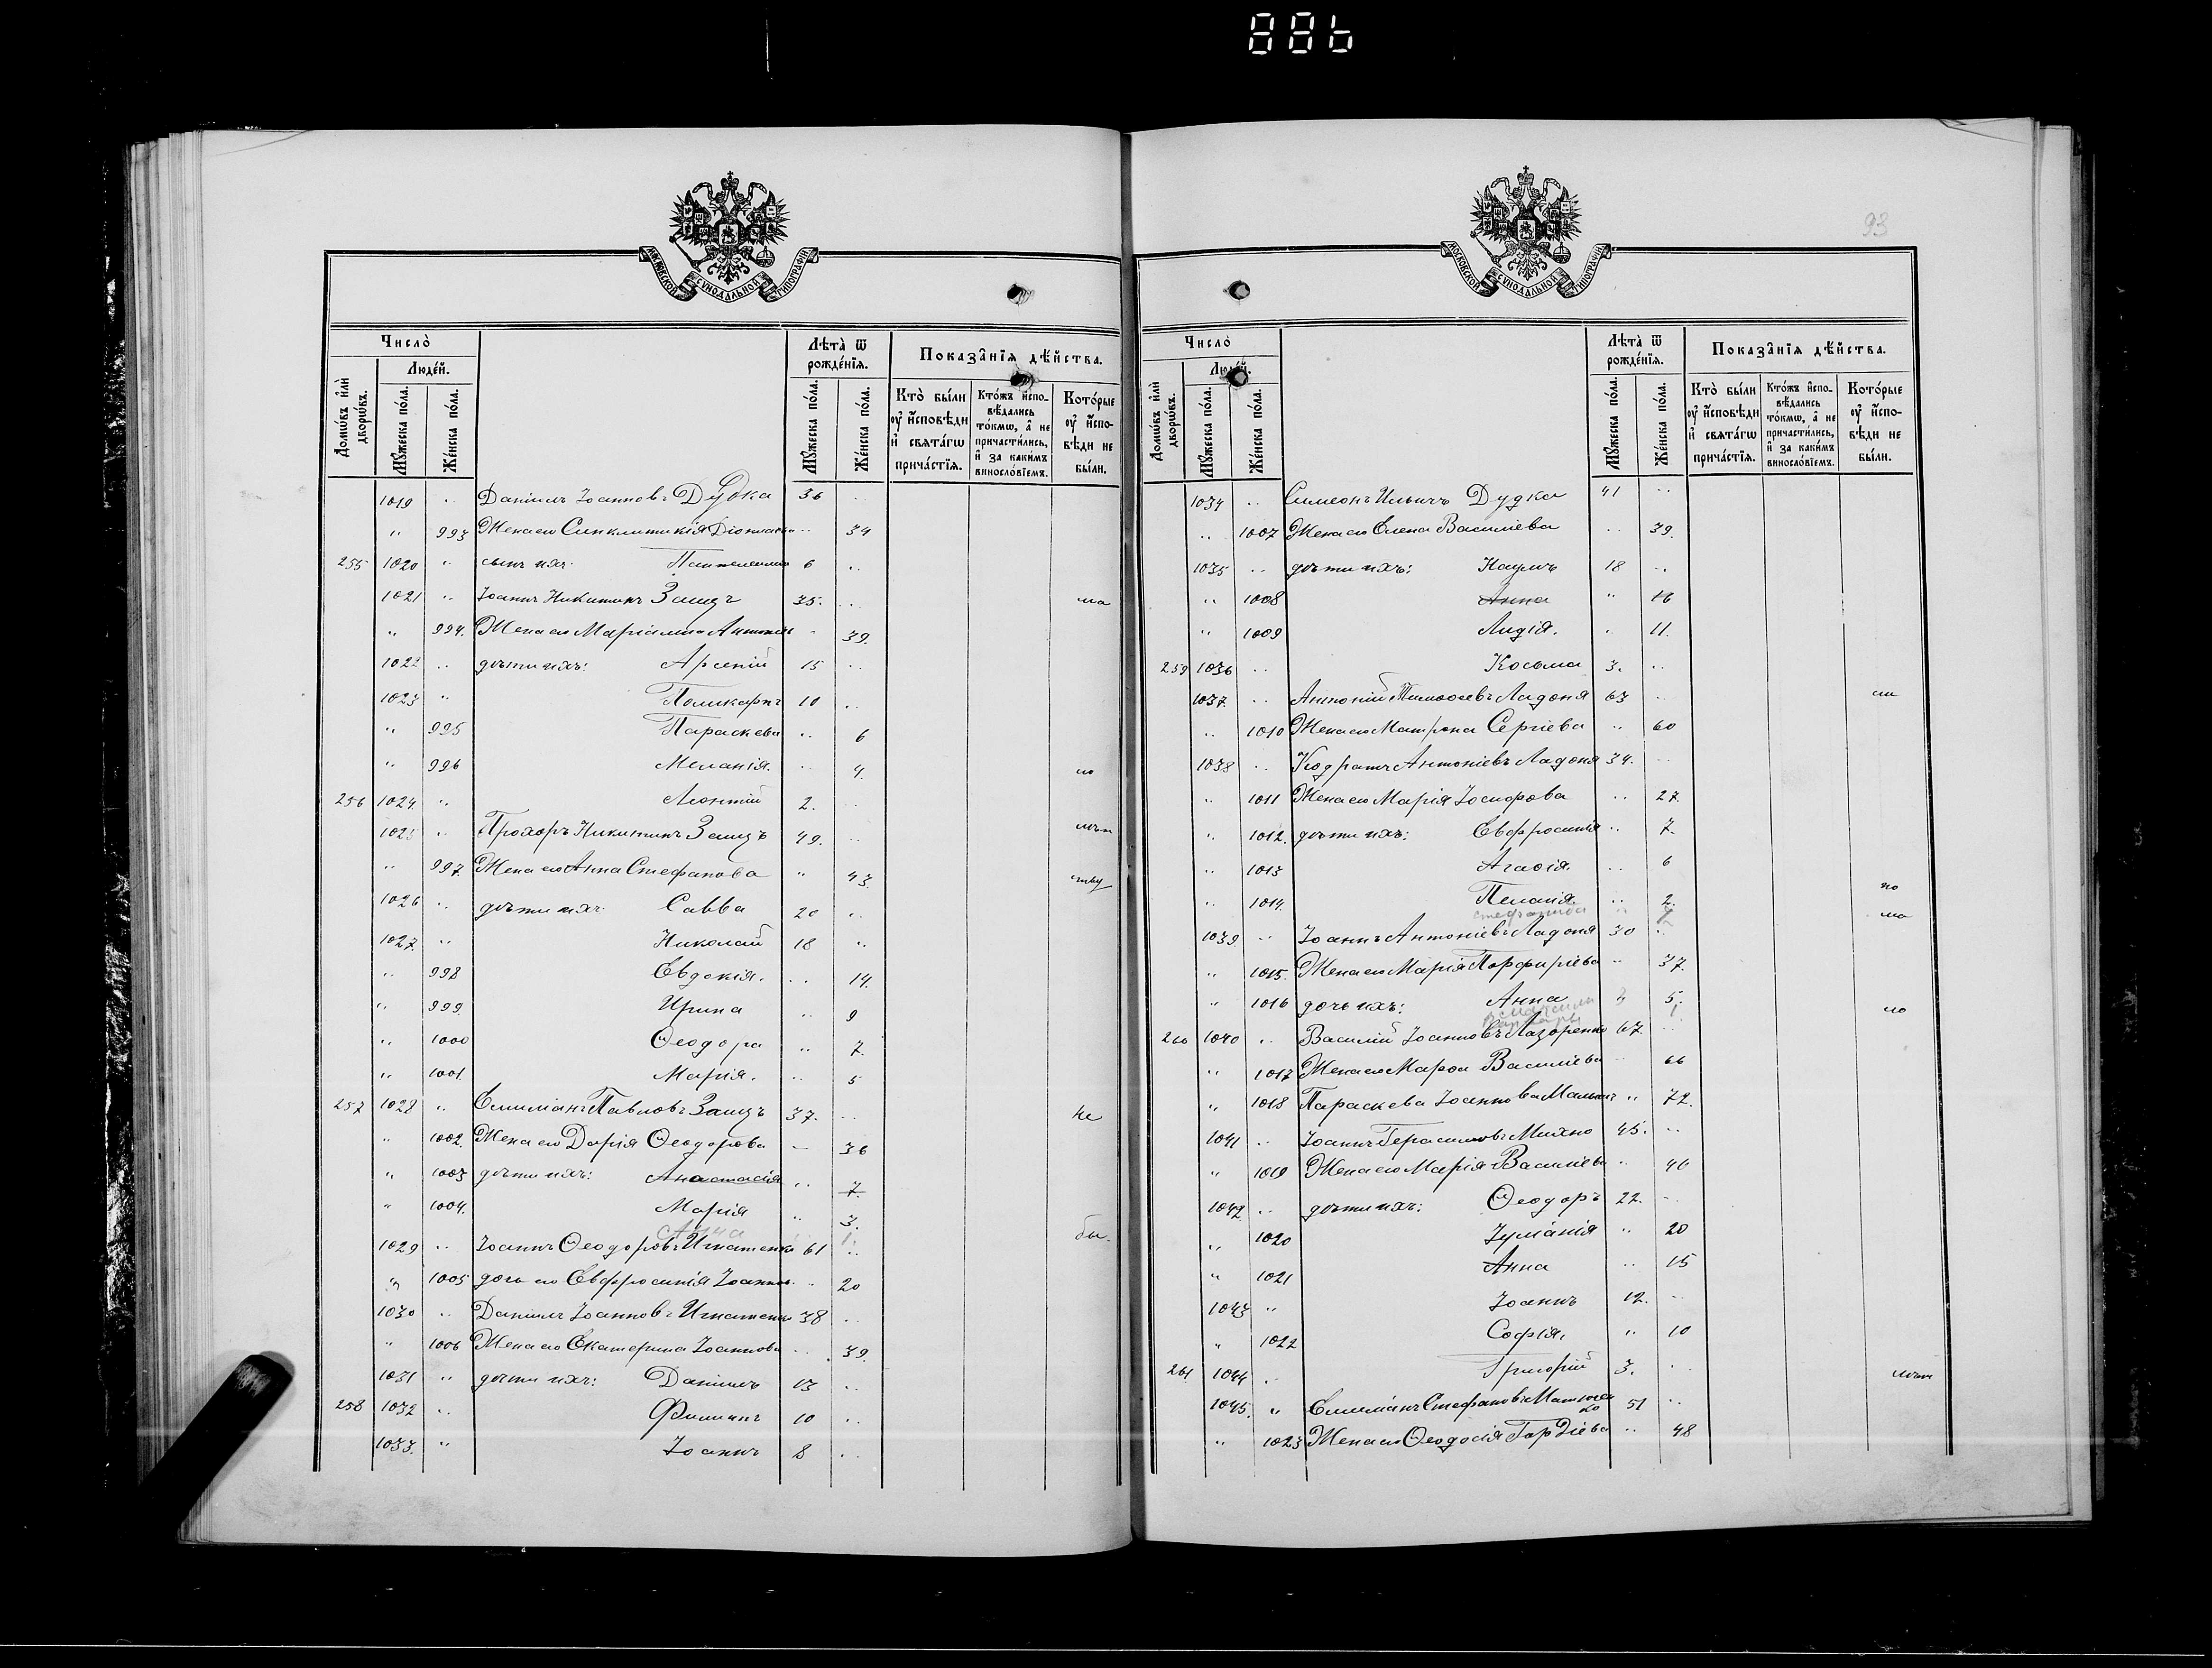 93
МОСКОВСКОЙ СУНОДАЛЬНОЙ ТИПОГРАФІИ
Число̀
Людей.
Домѡвъ и҆лѝ дворѡвъ.
Мꙋжеска по́ла.
Же́нска по́ла.
Лѣ́та ѿ рожде́нїѧ.
Мꙋжеска по́ла.
Же́нска по́ла.
Показа̑нїѧ дѣ́йства.
Кто̀ бы́ли ᲂу҆ и҆сповѣди и҆ свѧта́гѡ прича́стїѧ.
Кто́жъ и҆сповѣдались то́кмѡ, а҆ не причасти́лись, и҆ за каки́мъ винослові́емъ.
Кото́рые ᲂу҆ и҆сповѣди не бы́ли.
1019 " Даніилъ Іоанновъ Дудка 36 "
" 993 Жена его Синклитикія Діонисіева " 34
255 1020 " сынъ ихъ: Пантелеимонъ 6 "
1021 " Іоаннъ Никитинъ Заицъ 35. "
" 994. Жена его Маріамна Антоніева " 39.
1022 " дѣти ихъ: Арсеній 15 "
1023 " Поликарпъ 10 "
" 995 Параскева " 6
" 996 Меланія. " 4.
256 1024. " Леонтій 2.
1025 " Прохоръ Никитинъ Заицъ 49. "
" 997. Жена его Анна Стефанова " 43.
1026 " дѣти ихъ: Савва 20 "
1027. " Николай 18 "
" 998 Евдокія. " 14.
" 999. Ирина " 9
" 1000 Ѳеодора " 7.
" 1001. Марія. " 5
257 1028 " Емиліанъ Павловъ Заицъ 37. " не
" 1002. Жена его Дарія Ѳеодорова — 36
" 1003 дѣти ихъ: Анастасія " 7.
" 1004. Марія " 3.
Анна 1. бы.
1029 " Іоаннъ Ѳеодоровъ Игнатенко 61 "
" 1005 дочь его Евфросинія Іоаннова " 20
1030 " Даніилъ Іоанновъ Игнатенко 38 "
" 1006 Жена его Екатерина Іоаннова " 39.
1031 " дѣти ихъ: Даніилъ 13 "
258 1032 " Филипъ 10 "
1033. " Іоаннъ 8 "
МОСКОВСКОЙ СУНОДАЛЬНОЙ ТИПОГРАФІИ
Число̀
Людей.
Домѡвъ и҆лѝ дворѡвъ.
Мꙋжеска по́ла.
Же́нска по́ла.
Лѣ́та ѿ рожде́нїѧ.
Мꙋжеска по́ла.
Же́нска по́ла.
Показа̑нїѧ дѣ́йства.
Кто̀ бы́ли ᲂу҆ и҆сповѣди и҆ свѧта́гѡ прича́стїѧ.
Кто́жъ и҆сповѣдались то́кмѡ, а҆ не причасти́лись, и҆ за каки́мъ винослові́емъ.
Кото́рые ᲂу҆ и҆сповѣди не бы́ли.
1034 " Симеонъ Ильичъ Дудка 41 "
" 1007 Жена его Елена Василіева " 39.
1035 " дѣти ихъ: Наумъ 18 "
" 1008 Анна " 16
" 1009 Лидія. " 11.
259 1036 " Косьма 3. "
1037. " Антоній Тимоѳеевъ Ладоня 63 "
" 1010 Жена его Матрона Сергіева " 60
1038 " Кодратъ Антоніевъ Ладоня 34. "
" 1011 Жена его Марія Іосифова " 27.
" 1012. дѣти ихъ: Евфросинія " 7.
" 1013 Агаѳія. " 6
" 1014. Пелагія. " 2. но
1039. " Іоаннъ Антоніевъ Ладоня 30 "
" 1015. Жена его Марія Порфиріева " 37.
" 1016 дочь ихъ: Анна 5.
260 1040 " Василій Іоанновъ Лазоренко 67. "
" 1017 Жена его Марѳа Василіева " 66
" 1018 Параскева Іоаннова " 72.
1041 " Іоаннъ Герасимовъ Михно 45. "
" 1019 Жена его Марія Василіева " 46
1042 " дѣти ихъ: Ѳеодоръ 22. "
" 1020 Іуліанія " 20
" 1021 Анна " 15
1043 " Іоаннъ 12. "
" 1022 Софія. " 10
261 1044 " Григорій 3. "
1045. " Емиліанъ Стефановъ Матюшенко 51 "
" 1023 Жена его Ѳеодосія Гордіева " 48